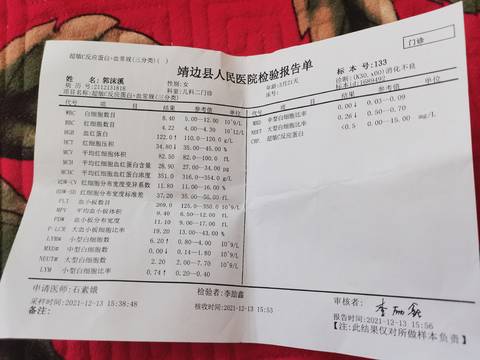 超敏C反应蛋白+血常规(三分类)( )
门诊
靖边县人民医院检验报告单
标本号:133
姓名: 郭沫溪
性别:女
年龄:3月21天
诊断:(K30.x00)消化不良
病历号:2112131818
科室:儿科二门诊
床号:
项目名称:超敏C反应蛋白+血常规(三分类)
代号 项目 结果 参考值 单位
WBC 白细胞数目 8.40 5.00--12.00 10^9/L
RBC 红细胞数目 4.22 4.00--4.30 10^12/L
HGB 血红蛋白 122.0↑ 110.0--120.0 g/L
HCT 红细胞压积 34.80 35.00--45.00 %
MCV 平均红细胞体积 82.50 82.00--100.0 fL
MCH 平均红细胞血红蛋白含量 28.90 27.00--34.00 pg
MCHC 平均红细胞血红蛋白浓度 351.0 316.0--354.0 g/L
RDW-CV 红细胞分布宽度变异系数 11.80 11.00--16.00 %
RDW-SD 红细胞分布宽度标准差 37.20 35.00--56.00 fL
PLT 血小板数目 269.0 125.0--350.0 10^9/L
MPV 平均血小板体积 9.40 6.50--12.00 fL
PDW 血小板分布宽度 11.10 9.00--17.00
P-LCR 大血小板比率 19.20 13.00--43.00 %
LYM# 小型白细胞数 6.20↑ 0.80--4.00 10^9/L
MXD# 中型白细胞数 0.00↓ 0.14--1.80 10^9/L
NEUT# 大型白细胞数 2.20 2.00--7.70 10^9/L
LYM 小型白细胞比率 0.74↑ 0.20--0.40
代号 项目 结果 参考值 单位
MXD 中型白细胞比率 0.00↓ 0.03--0.09
NEUT 大型白细胞比率 0.26↓ 0.50--0.70
CRP. 超敏C反应蛋白 <0.5 0.00--15.00 mg/L
申请医师:石素娥
检验者:李勋鑫
审核者:
采样时间:2021-12-13 15:38:48
核收时间:2021-12-13 15:53
报告时间:2021-12-13 15:56
备注:
[注:此结果仅对所做样本负责]